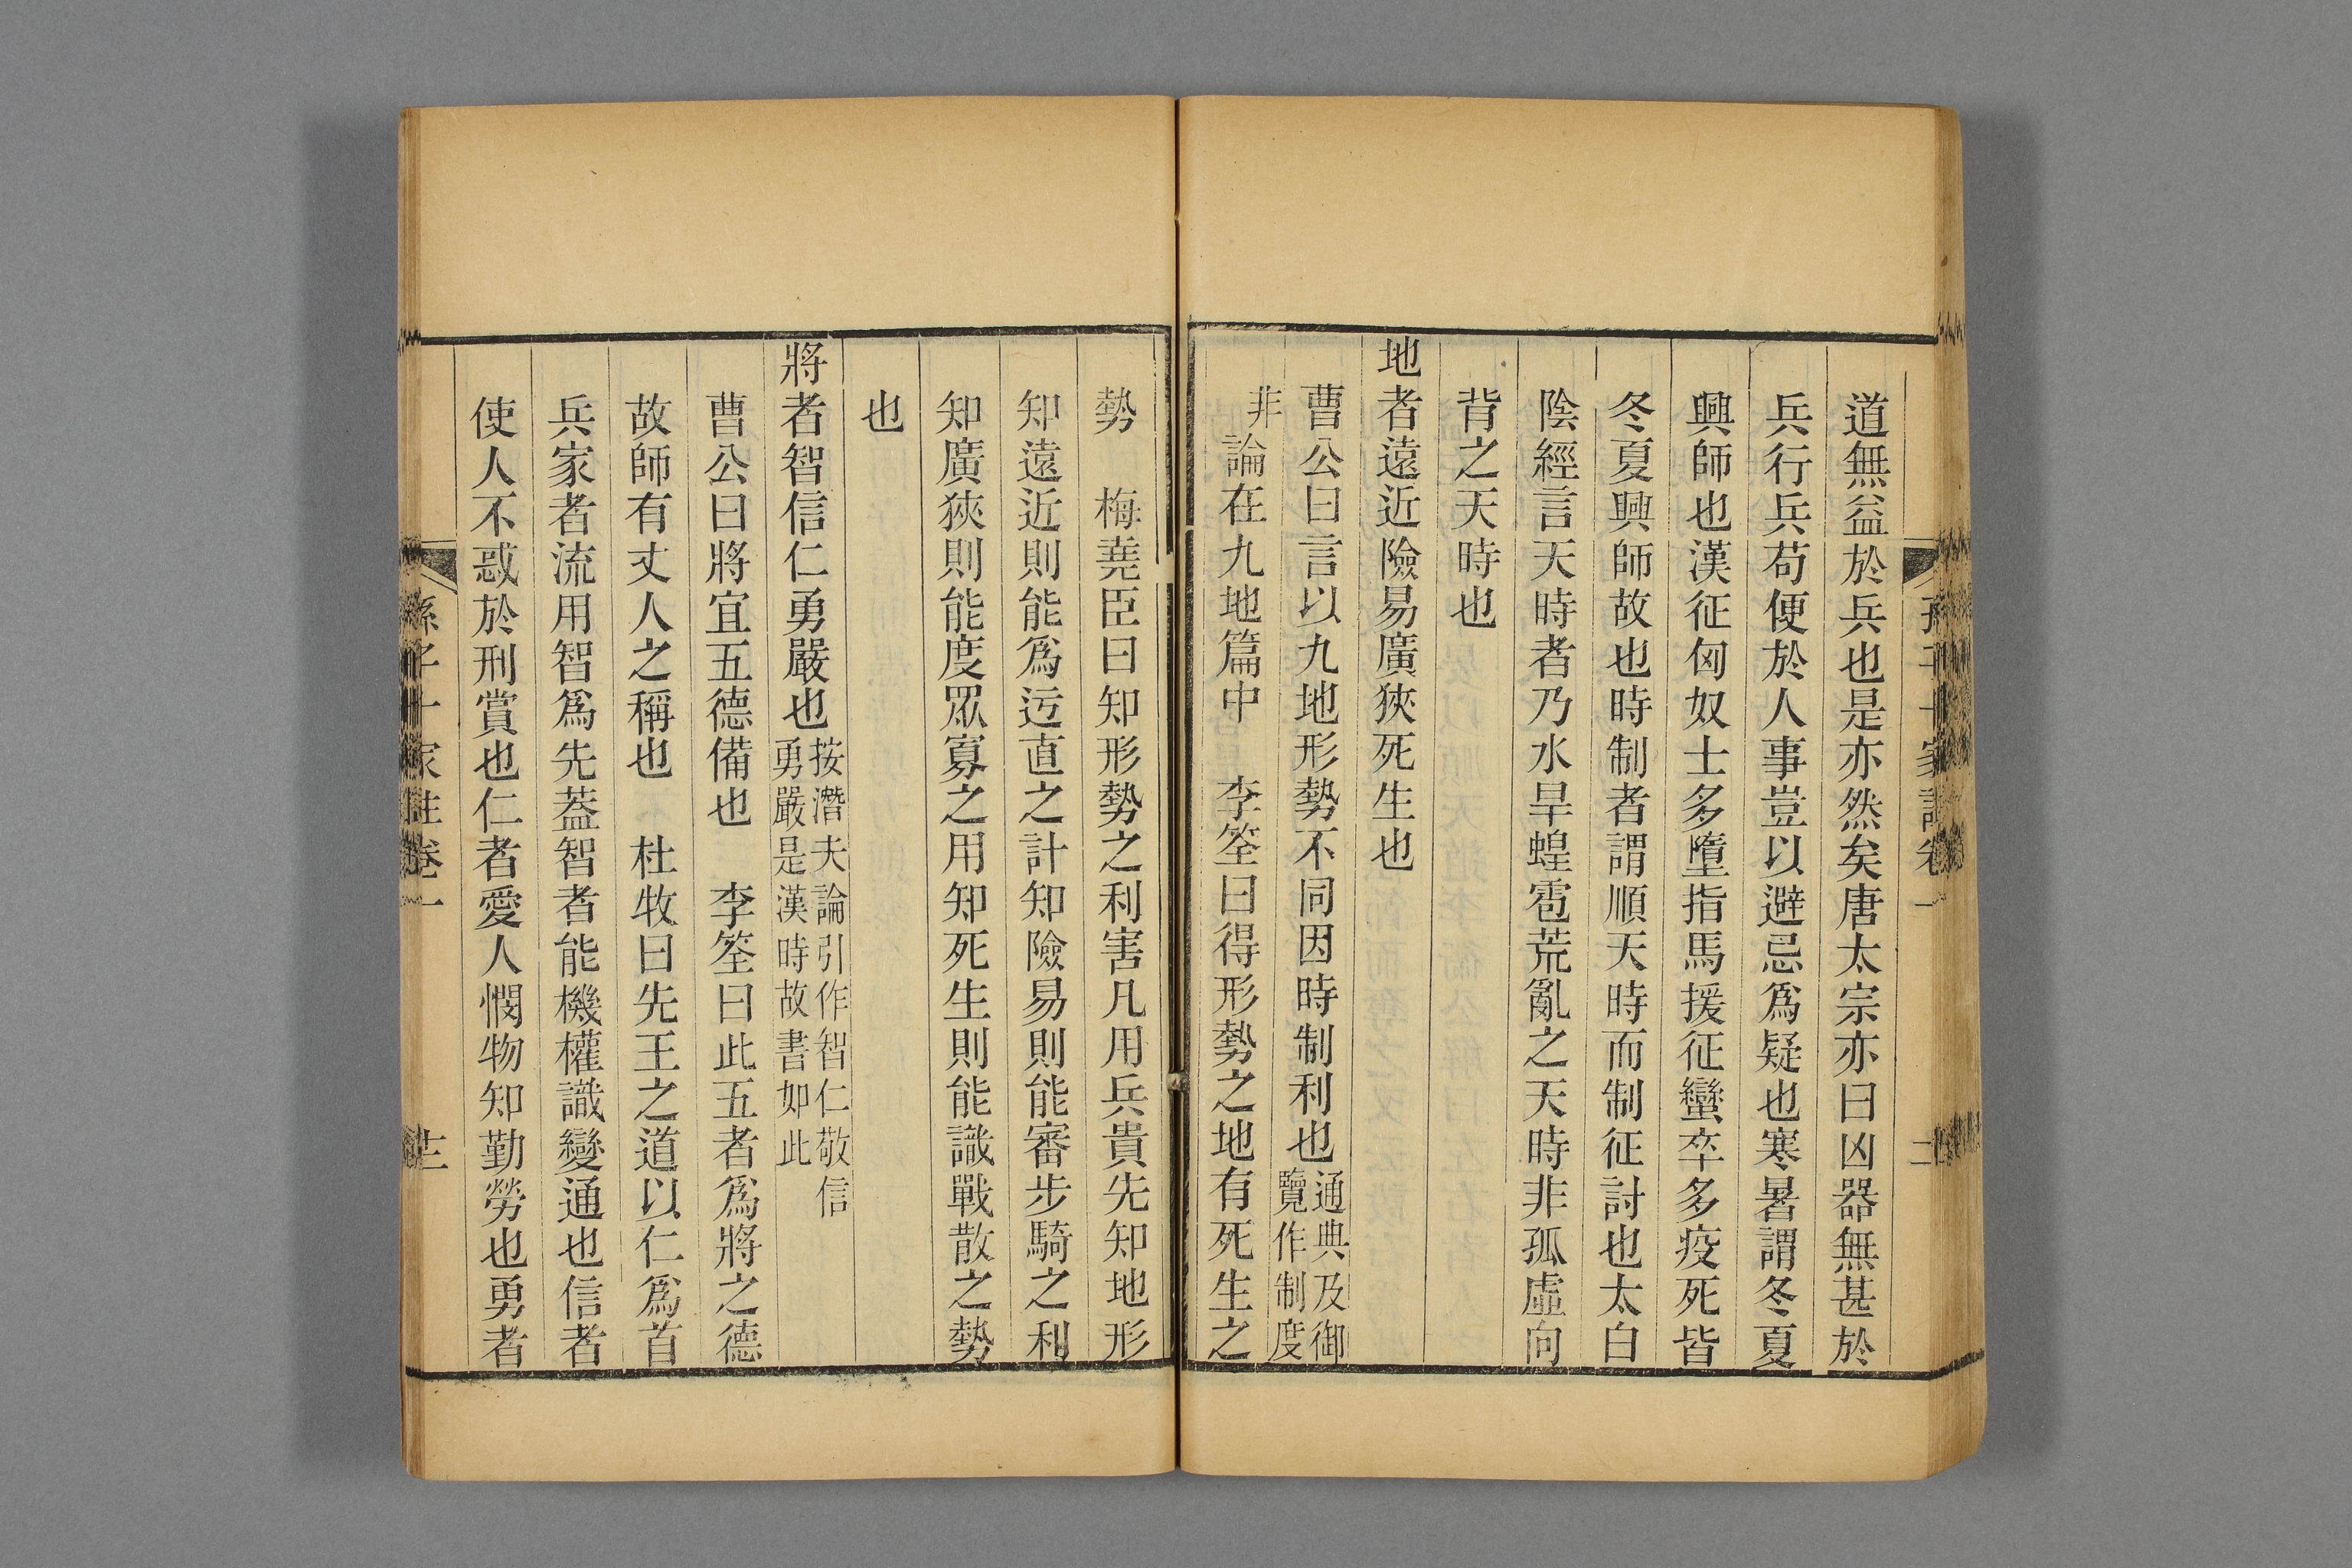 道無益於兵也是亦然矣唐太宗亦曰凶器無甚於
兵行兵苟便於人事豈以避忌爲疑也寒暑謂冬夏
興師也漢征匈奴士多墮指馬援征蠻卒多疫死皆
冬夏興師故也時制者謂順天時而制征討也太白
陰經言天時者乃水旱蝗雹荒亂之天時非孤虛向
背之天時也
地者遠近險易廣狹死生也
曹公曰言以九地形勢不同因時制利也通典及御
覽作制度
非論在九地篇中　李筌曰得形勢之地有死生之
勢　梅堯臣曰知形勢之利害凡用兵貴先知地形
知遠近則能爲迃直之計知險易則能審步騎之利
知廣狹則能度眾寡之用知死生則能識戰散之勢
也
將者智信仁勇嚴也按潛夫論引作智仁敬信
勇嚴是漢時故書如此
曹公曰將宜五德備也　李筌曰此五者爲將之德
故師有丈人之稱也　杜牧曰先王之道以仁爲首
兵家者流用智爲先蓋智者能機權識變通也信者
使人不惑於刑賞也仁者愛人憫物知勤勞也勇者
孫子十家註卷一